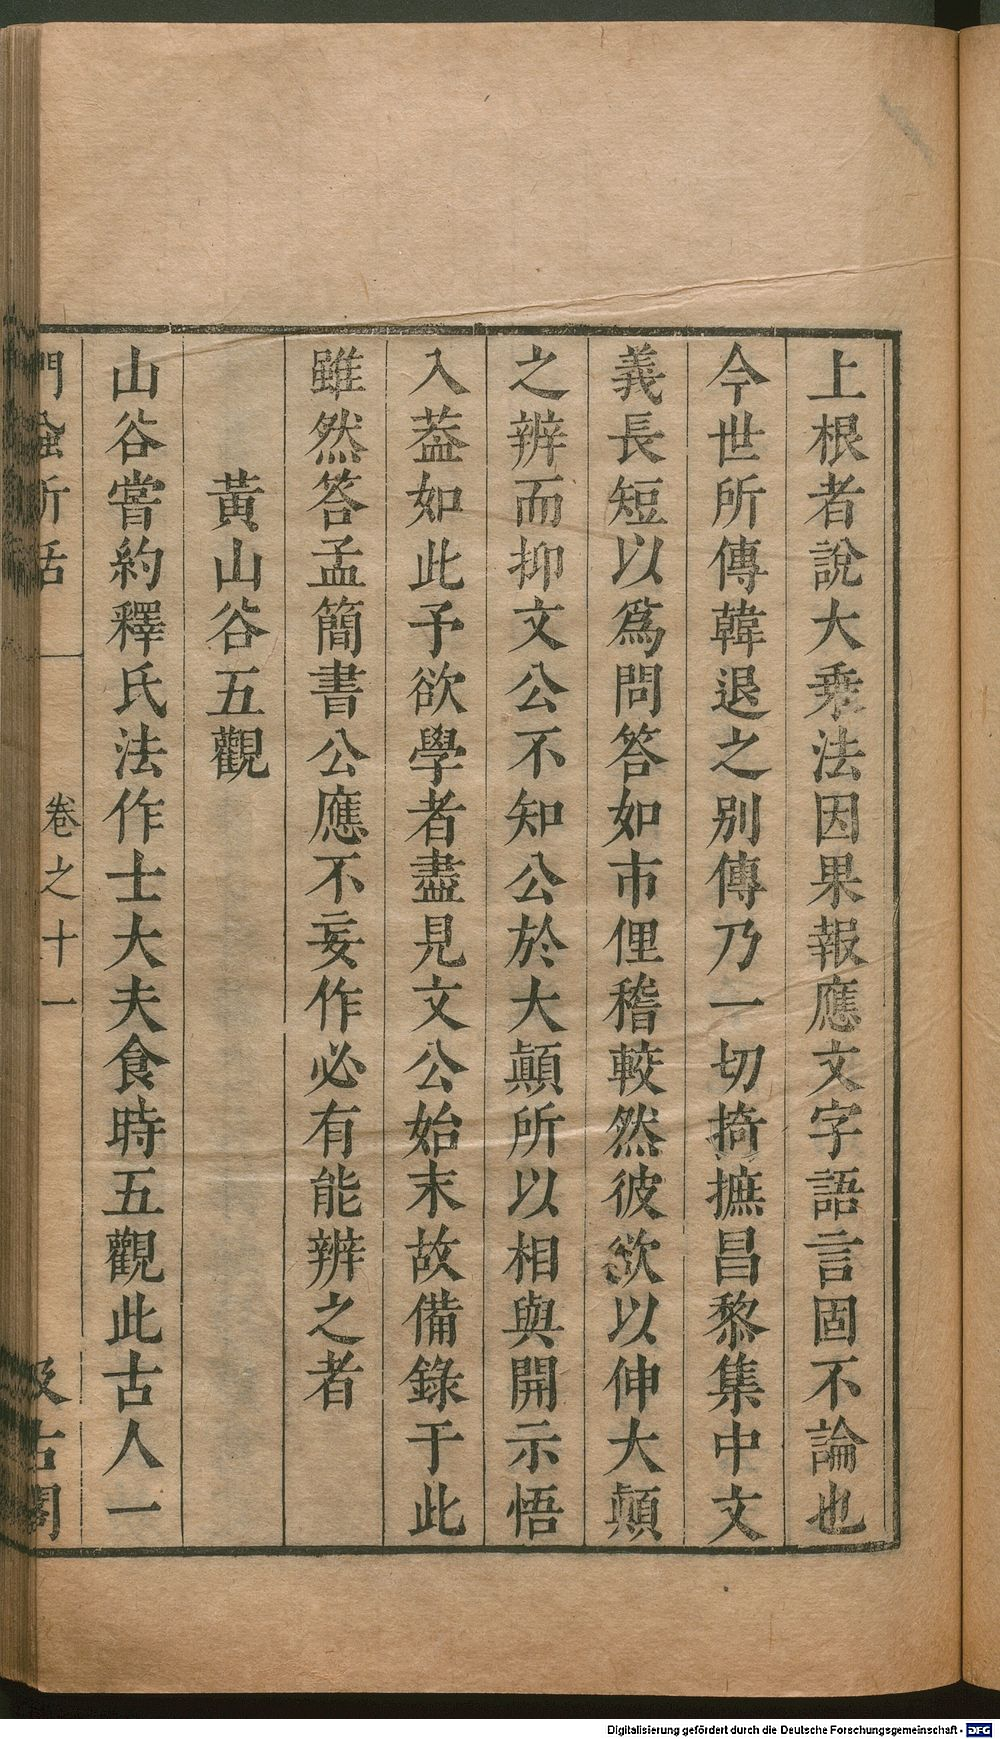 上根者說大乘法因果報應文字語言固不論也
今世所傳韓退之別傳乃一切掎摭昌黎集中文
義長短以爲問答如市俚稽較然彼欲以伸大顛
之辨而抑文公不知公於大顛所以相與開示悟
入葢如此予欲學者盡見文公始末故備錄于此
雖然答孟簡書公應不妄作必有能辨之者
黃山谷五觀
山谷嘗約釋氏法作士大夫食時五觀此古人一
卷之十一
汲古閣
Digitalisierung gefördert durch die Deutsche Forschungsgemeinschaft - DFG